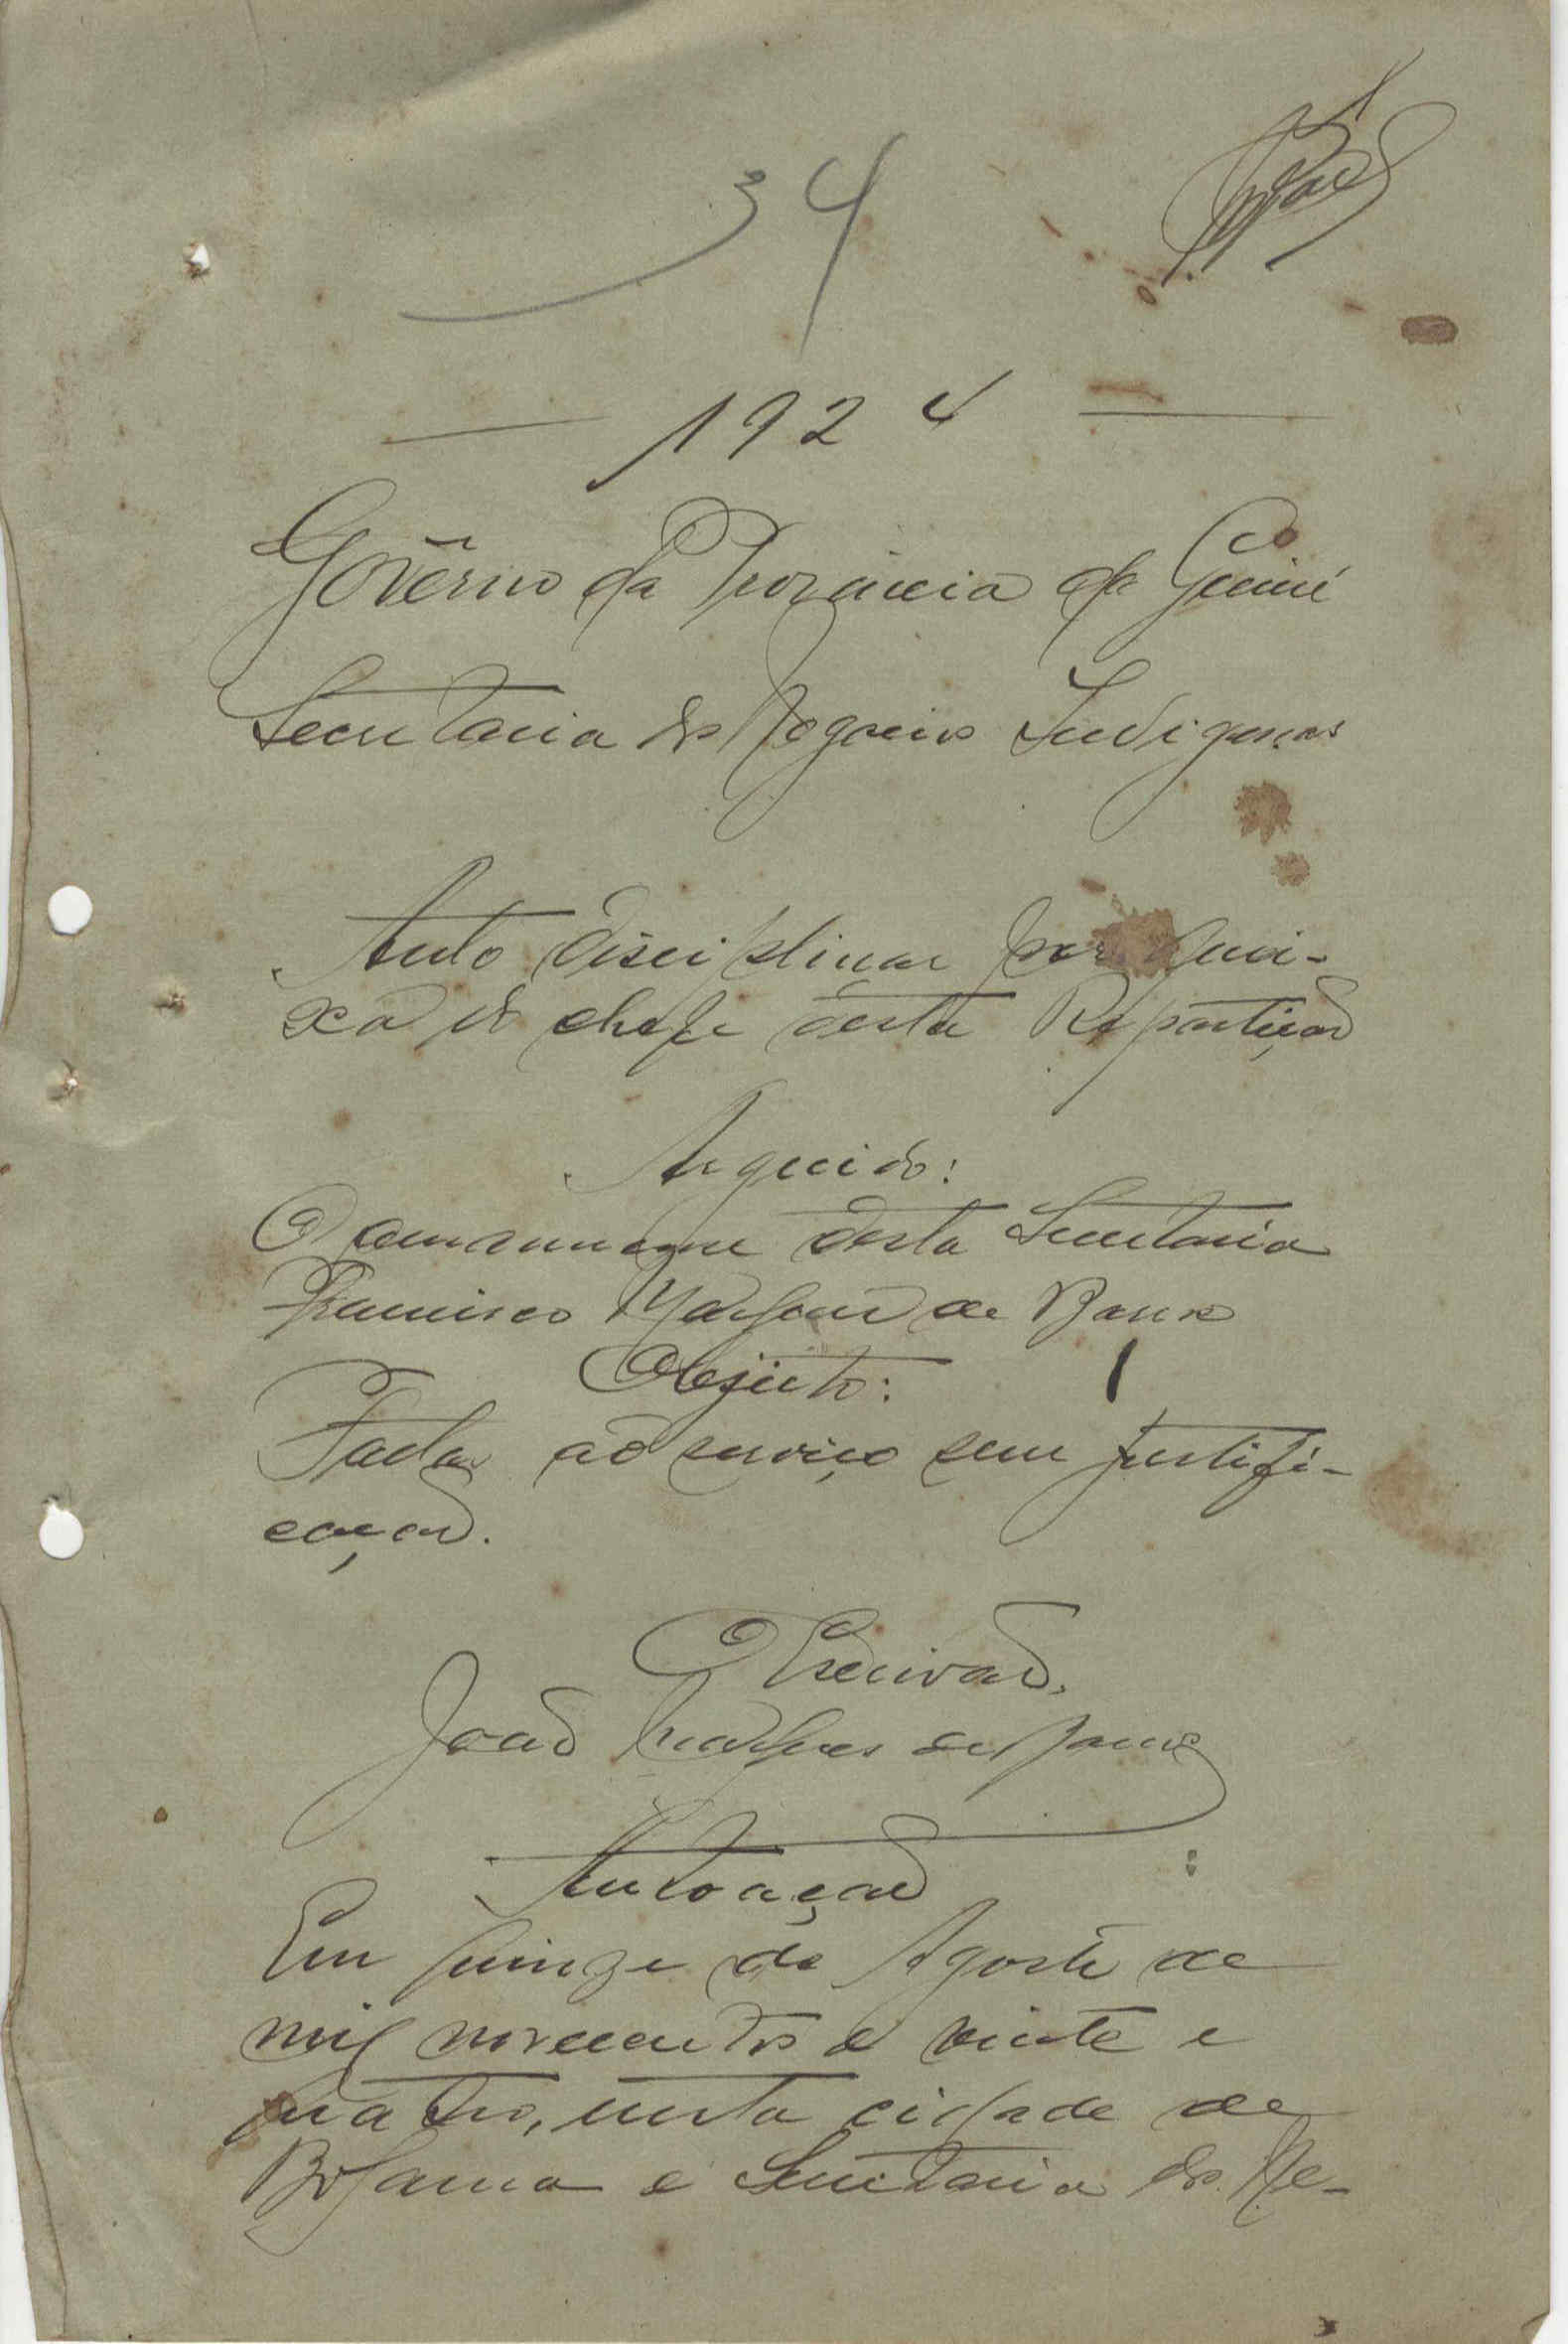 34
1924
Govêrno da Provincia da Guiné
Secretaria dos Negocios Indigenas
Auto disciplinar por quei-
xa do chefe desta Repartição
Arguido:
O amanuense desta Secretaria
Francisco de Barros
Objecto:
Faltar ao serviço sem justifi-
cação.
O Escrivão,
João
Autoação
Em quinze de Agosto de
mil novecentos e vinte e
quatro, nesta cidade de
Bolama e Secretaria dos Ne-